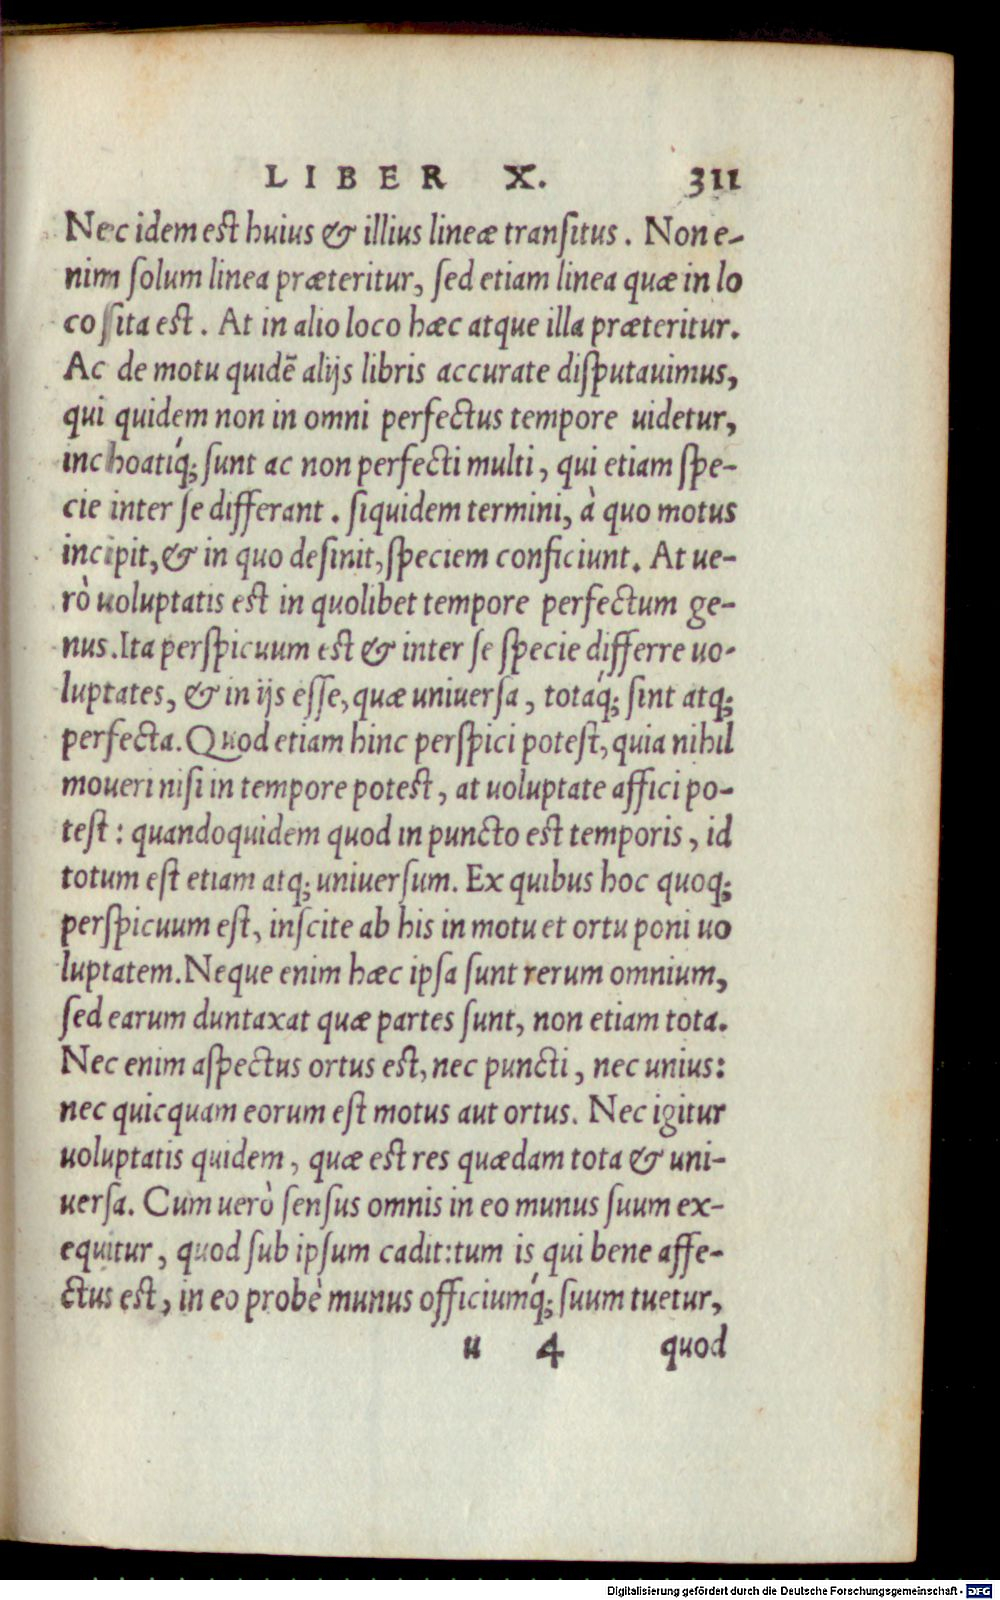 LIBER X. 311
Nec idem est huius & illius lineæ transitus. Non e-
nim solum linea præteritur, sed etiam linea quæ in lo
co sita est. At in alio loco hæc atque illa præteritur.
Ac de motu quidē alijs libris accurate disputauimus,
qui quidem non in omni perfectus tempore uidetur,
inchoatiq́; sunt ac non perfecti multi, qui etiam spe-
cie inter se differant. siquidem termini, à quo motus
incipit, & in quo desinit, speciem conficiunt. At ue-
rò uoluptatis est in quolibet tempore perfectum ge-
nus. Ita perspicuum est & inter se specie differre uo-
luptates, & in ijs esse, quæ uniuersa, totaq́; sint atq;
perfecta. Quod etiam hinc perspici potest, quia nihil
moueri nisi in tempore potest, at uoluptate affici po-
test: quandoquidem quod in puncto est temporis, id
totum est etiam atq; uniuersum. Ex quibus hoc quoq;
perspicuum est, inscite ab his in motu et ortu poni uo
luptatem. Neque enim hæc ipsa sunt rerum omnium,
sed earum duntaxat quæ partes sunt, non etiam tota.
Nec enim aspectus ortus est, nec puncti, nec unius:
nec quicquam eorum est motus aut ortus. Nec igitur
uoluptatis quidem, quæ est res quædam tota & uni-
uersa. Cum uerò sensus omnis in eo munus suum ex-
equitur, quod sub ipsum cadit: tum is qui bene affe-
ctus est, in eo probè munus officiumq́; suum tuetur,
u 4 quod
Digitalisierung gefördert durch die Deutsche Forschungsgemeinschaft - DFG